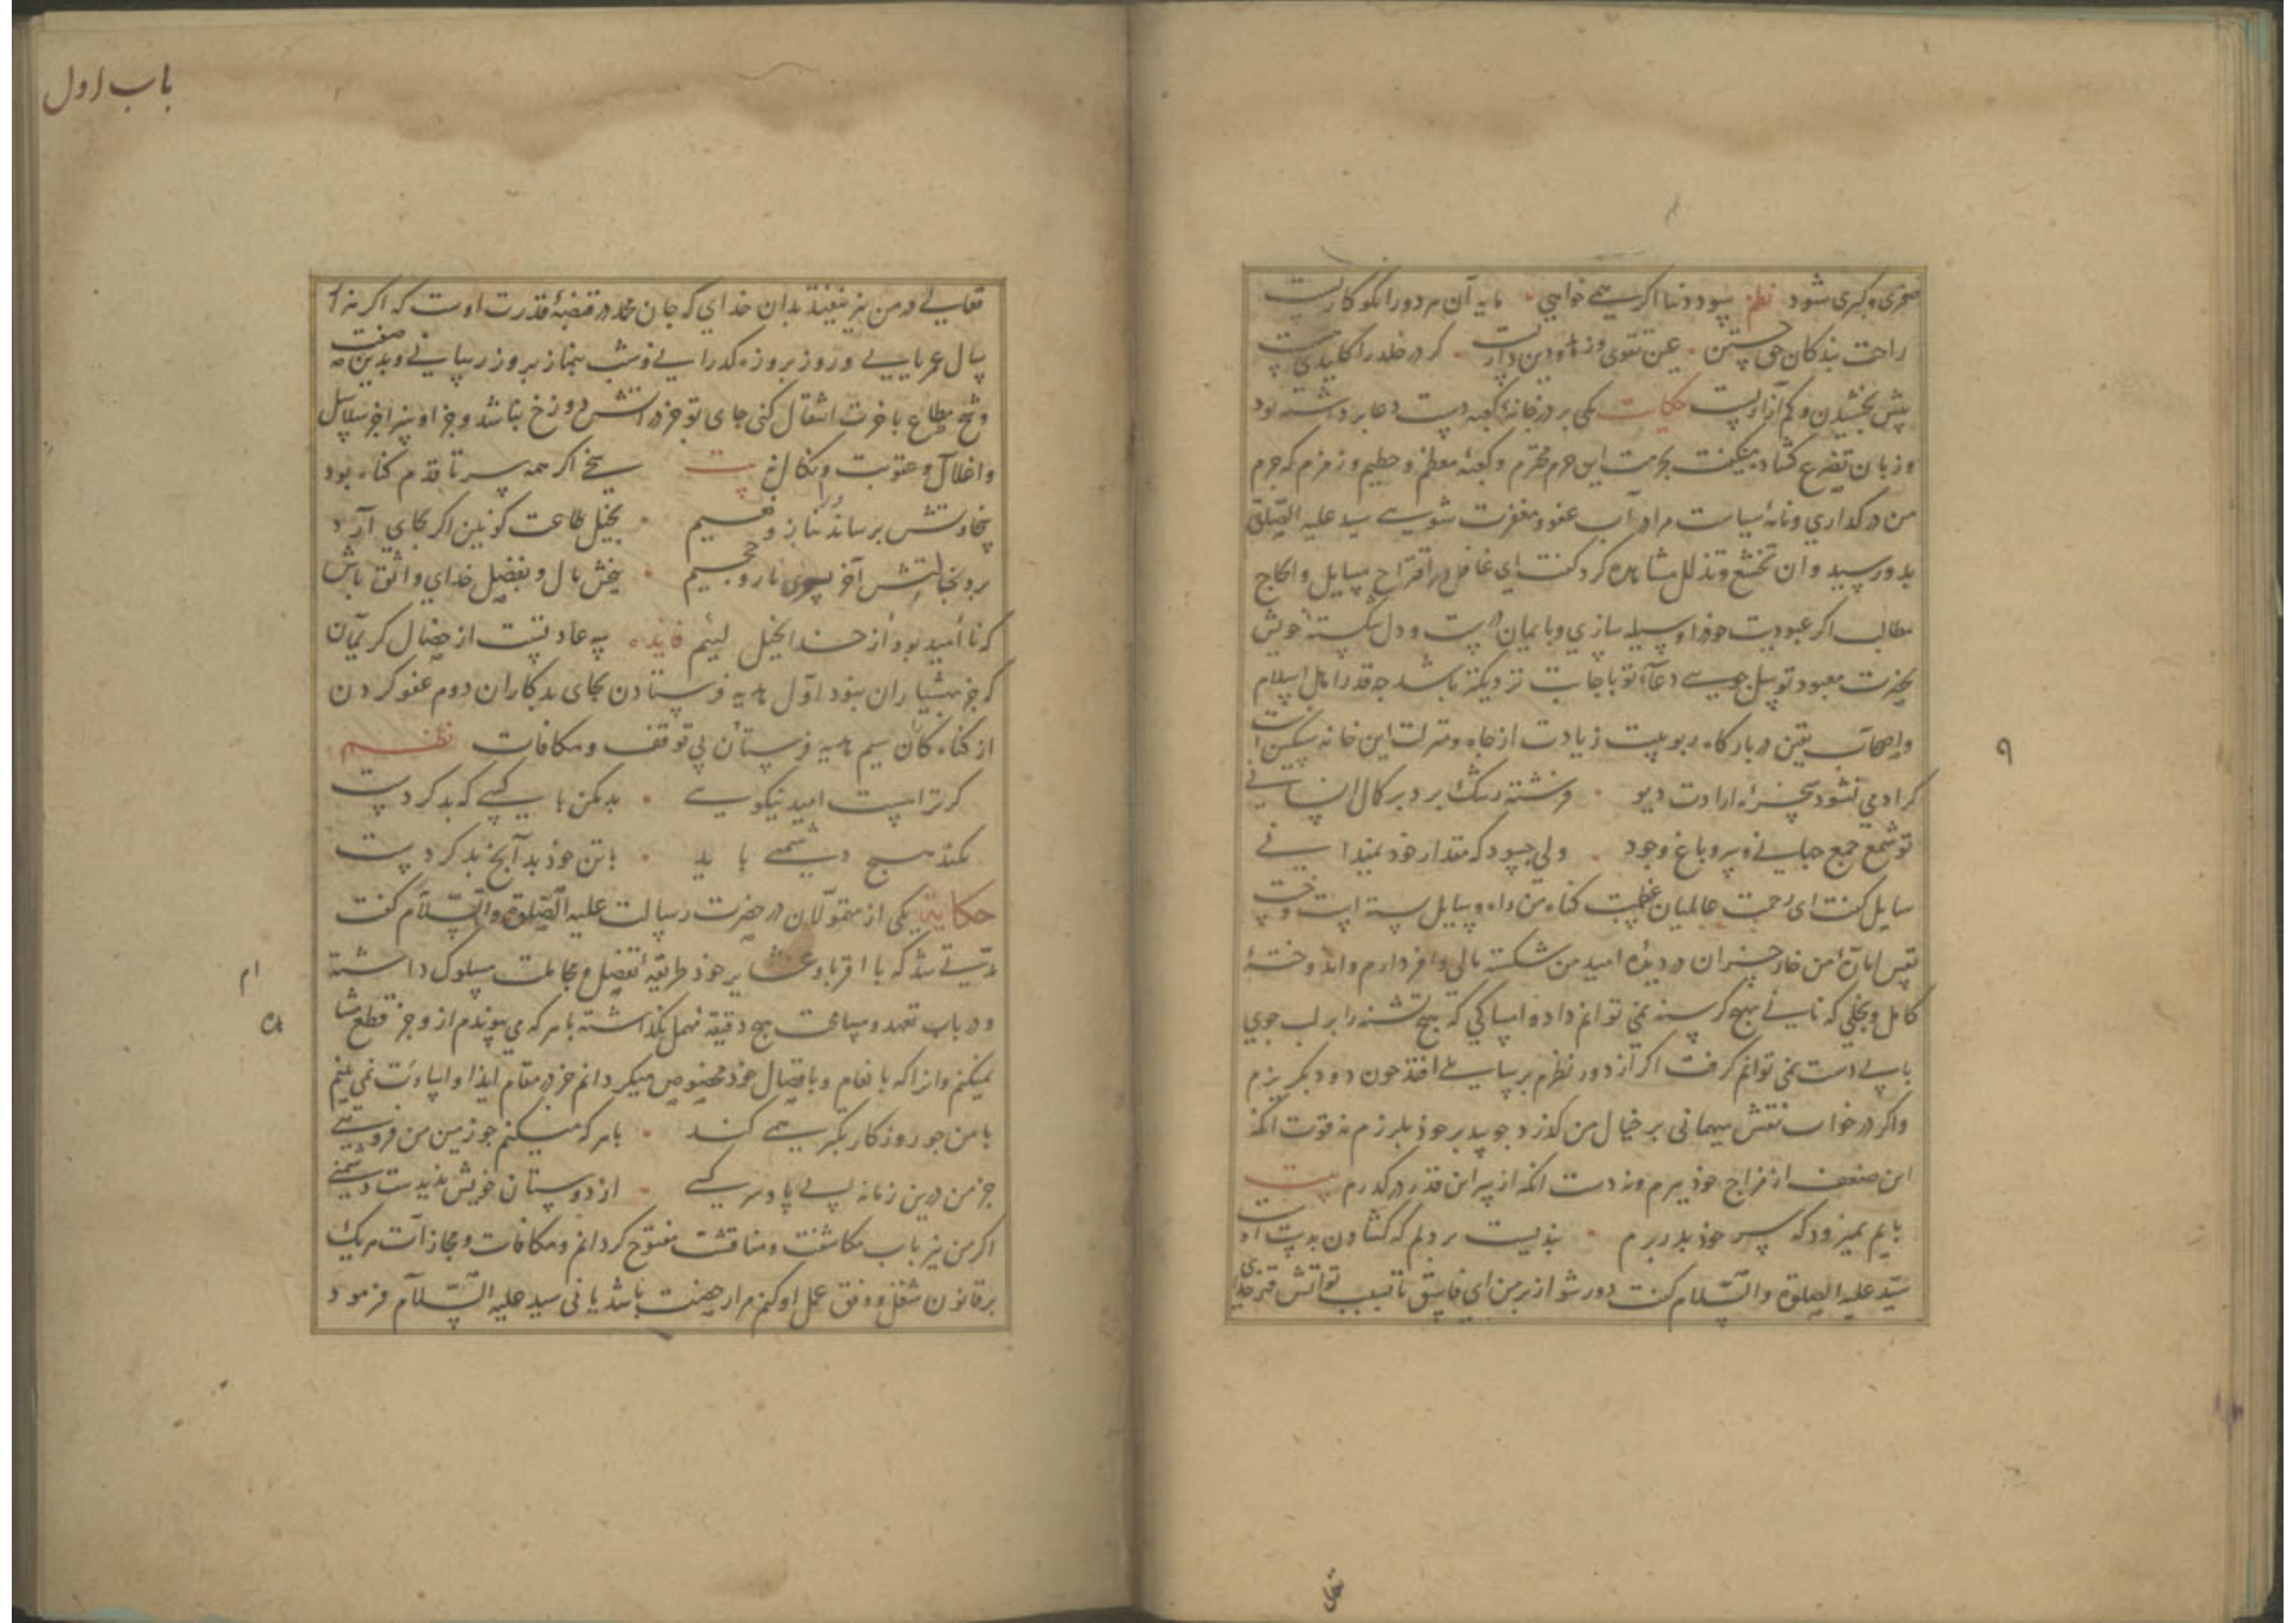 صغری و کبری شود نظم سود دنیا اکر همی خواهی مایه آن هر دورا نکو کاریست
راحت بندکان حق جستن عین تقوی و زهد و دین داریست کر در خلد را کلیدی هست
بیش بخشیدن و کم آزاریست حکایت یکی بر در خانه کعبه دست دعا برداشته بود
و زبان تضرع کشاده میکفت بحرمت این حرم محترم و کعبه معظم و حطیم و زمزم که جرم
من در کذاری و نامه سیات مرا در آب عفو و مغفرت شویی سید علیه الصلوة
بدو رسید و ان تخشع و تذلل مشاهده کرد کفت ای غافل در اقتراح مسایل و انجاح
مطالب اکر عبودیت خود را وسیله سازی و بایمان درست و دل شکسته خویش
بحضرت معبود توسل جویی دعاء تو باجابت نزدیکتر باشد چه قدر اهل اسلام
و اصحاب یقین در بارکاه ربوبیت زیادت از جاه و منزلت این خانه سکین است
کر آدمی نشود سخره ارادت دیو فرشته رشک برد بر کمال انسانی
تو شمع جمع جهانی و سرو باغ وجود ولی چسود که مقدار خود نمیدانی
سایل کفت ای رحمت عالمیان عظمت کناه من راه وسایل بسته است و خست
نفس اماره من خار خسران در دیده امید من شکسته مالی وافر دارم و اندوخته
کامل و بخلی که نانی بهیچ کرسنه نمی توانم داد و امساکی که هیچ تشنه را بر لب جوی
بآبی دست نمی توانم کرفت اکر از دور نظرم بر سایلی افتد چون دود بکریزم
و اکر در خواب نقش میهمانی بر خیال من کذرد چو بید بر خود بلرزم نه قوت انکه
این ضعف از مزاج خود ببرم و نه دست انکه از سر این قدر در کذرم بیت
پایم نمیرود که پسر خود بدر برم بندیست بر دلم که کشادن بدست او
سید علیه الصلوة والسلام کفت دور شو از بر من ای فاسق تا بسبب تو آتش قهر خدای
۹
باب اول
تعالی در من نیز نیفتد بدان خدای که جان محمد در قبضه قدرت اوست که اکر هزار
سال عمر یابی و روز بروزه کذرانی و شب بنماز بروز رسانی و بدین صفت
و شح مطاع باخرت انتقال کنی جای تو جز در آتش دوزخ نباشد و جز او سزا جز سلاسل
و اغلال و عقوبت و نکال نه بیت سخی اکر همه سر تا قدم کناه بود
سخاوتش برساند بناز و نعیم بخیل طاعت کونین اکر بجای آرد
برد بخالتش آخر بسوی نار و جحیم ببخش مال و بفضل خدای واثق باش
که نا امید بود از خدا بخیل لئیم فایده سه عادتست از خصال کریمان
که جز هشیاران نبود اول هدیه فرستادن بجای بدکاران دوم عفو کردن
از کناه کان سیم هدیه فرستادن بی توقف و مکافات نظم
کر ترا هست امید نیکویی بد مکن با کسی که بد کردست
نکند هیچ دشمنی با بد با تن خود بد آنچ بد کردست
حکایت یکی از متمولان در حضرت رسالت علیه الصلوة والسلام کفت
مدتی شد که با اقربا و عشایر خود طریقه تفضل و مجاملت مسلوک داشته
و در باب تعهد و مسامحت هیچ دقیقه مهمل نکذاشته با هر که می پیوندم از و جز قطع مشا
ام
ده
نمیکنم و انرا که بانعام و باصال خود مخصوص میکردانم جز در مقام ایذا و اساءت نمی بینم
با من چو روزکار تکبر همی کند با هر که میکنم چو زمین من فروتنی
جز من درین زمانه بی پا و سر کسی از دوستان خویش ندیدست دشمنی
اکر من نیز باب مکاشفت و مناقشت مفتوح کردانم و مکافات و مجازات هریک
بر قانون شغل و وفق عمل او کنم مرا رخصت باشد یا نی سید علیه السلام فرمود